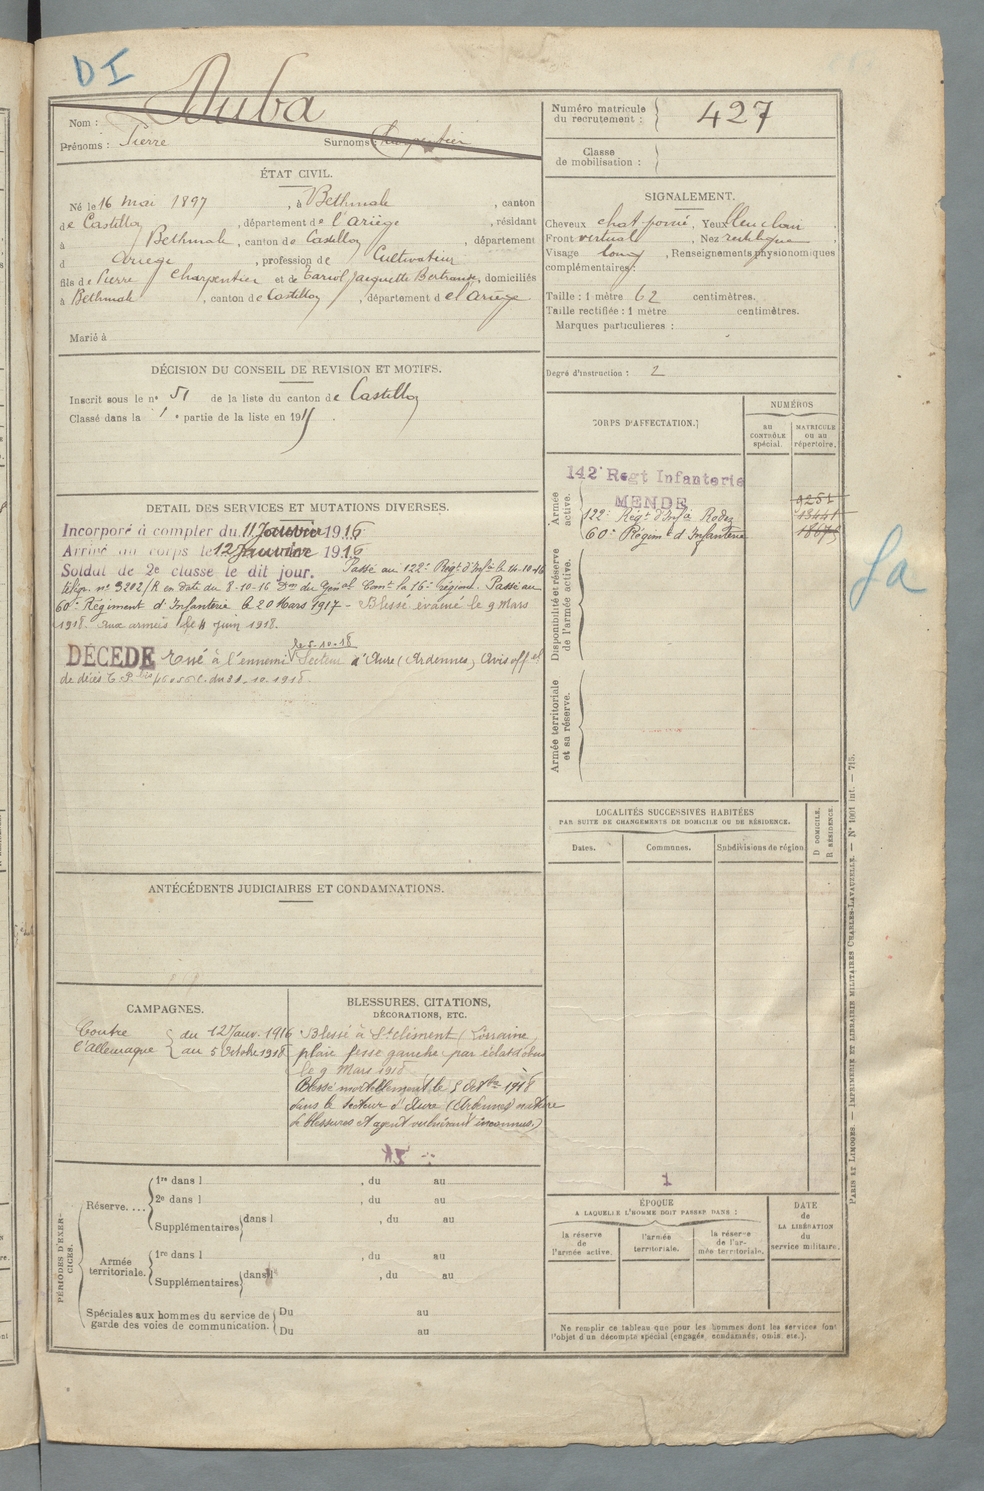 DI
Duba
Nom :
Prénoms : Pierre Surnoms : Charpentier
ÉTAT CIVIL.
Né le 16 mai 1897, à Bethmale, canton
de Castillon, département de l'Ariège, résidant
à Bethmale, canton de Castillon, département
d Ariège, profession de Cultivateur
fils de Pierre Charpentier et de Jacquette Bertrande, domiciliés
à Bethmale, canton de Castillon, département de l'Ariège
Marié à
DÉCISION DU CONSEIL DE REVISION ET MOTIFS.
Inscrit sous le n° 51 de la liste du canton de Castillon
Classé dans la 1e partie de la liste en 191
DETAIL DES SERVICES ET MUTATIONS DIVERSES.
Incorporé à compter du 11 Janvier 1916
Arrivé au corps le 12 Janvier 1916
Soldat de 2e classe le dit jour. Passé au 122e Regt d'Infie le 14-10-16
télégr. n° 3202/R en date du 8-10-16 Don du Général Comt la 16e région. Passé au
60e Régiment d'Infanterie le 20 Mars 1917 - Blessé évacué le 9 Mars
1918. aux armées le 4 juin 1918.
le 5-10-18
DÉCÉDÉ Tué à l'ennemi Secteur d'Aure (Ardennes) Avis offel
de décès du 21.10.1918.
ANTÉCÉDENTS JUDICIAIRES ET CONDAMNATIONS.
CAMPAGNES.
Contre l'Allemagne { du 12 Janv. 1916
au 5 Octobre 1918
BLESSURES, CITATIONS,
DÉCORATIONS, ETC.
Blessé à St Clément (Lorraine)
plaie fesse gauche par éclat d'obus
le 9 Mars 1918
Blessé mortellement le 5 Octbre 1918
dans le secteur d'Aure (Ardennes) nature
de blessures et agent vulnérant inconnus.)
PÉRIODES D'EXERCICES.
Réserve....
1re dans l , du au
2e dans l du au
Supplémentaires { dans l , du au
Armée
territoriale.
1re dans l , du au
Supplémentaires { dans l , du au
Spéciales aux hommes du service de
garde des voies de communication.
Du au
Du au
Numéro matricule
du recrutement : 427
Classe
de mobilisation :
SIGNALEMENT.
Cheveux chat. foncé, Yeux bleu clair
Front vertical, Nez rectiligne
Visage long, Renseignements physionomiques
complémentaires :
Taille : 1 mètre 62 centimètres.
Taille rectifiée : 1 mètre centimètres.
Marques particulieres :
Degré d'instruction : 2
CORPS D'AFFECTATION.
NUMÉROS
AU
CONTRÔLE
spécial.
MATRICULE
ou au
répertoire.
Armée
active.
142e Regt Infanterie
MENDE
122e Régt d'Infie Rodez
60e Régimt d'Infanterie
Disponibilité et réserve
de l'armée active.
Armée territoriale
et sa réserve.
LOCALITÉS SUCCESSIVES HABITÉES
PAR SUITE DE CHANGEMENTS DE DOMICILE OU DE RÉSIDENCE.
Dates. Communes. Subdivisions de région
D DOMICILE.
R RÉSIDENCE.
1
ÉPOQUE
A LAQUELLE L'HOMME DOIT PASSER DANS :
la réserve
de
l'armée active.
l'armée
territoriale.
la réserve
de l'ar-
mée territoriale.
DATE
de
LA LIBÉRATION
du
service militaire.
Ne remplir ce tableau que pour les hommes dont les services font
l'objet d'un décompte spécial (engagés, condamnés, omis, etc.).
PARIS ET LIMOGES. — IMPRIMERIE ET LIBRAIRIE MILITAIRES CHARLES-LAVAUZELLE. — N° 1001 int. — 715.